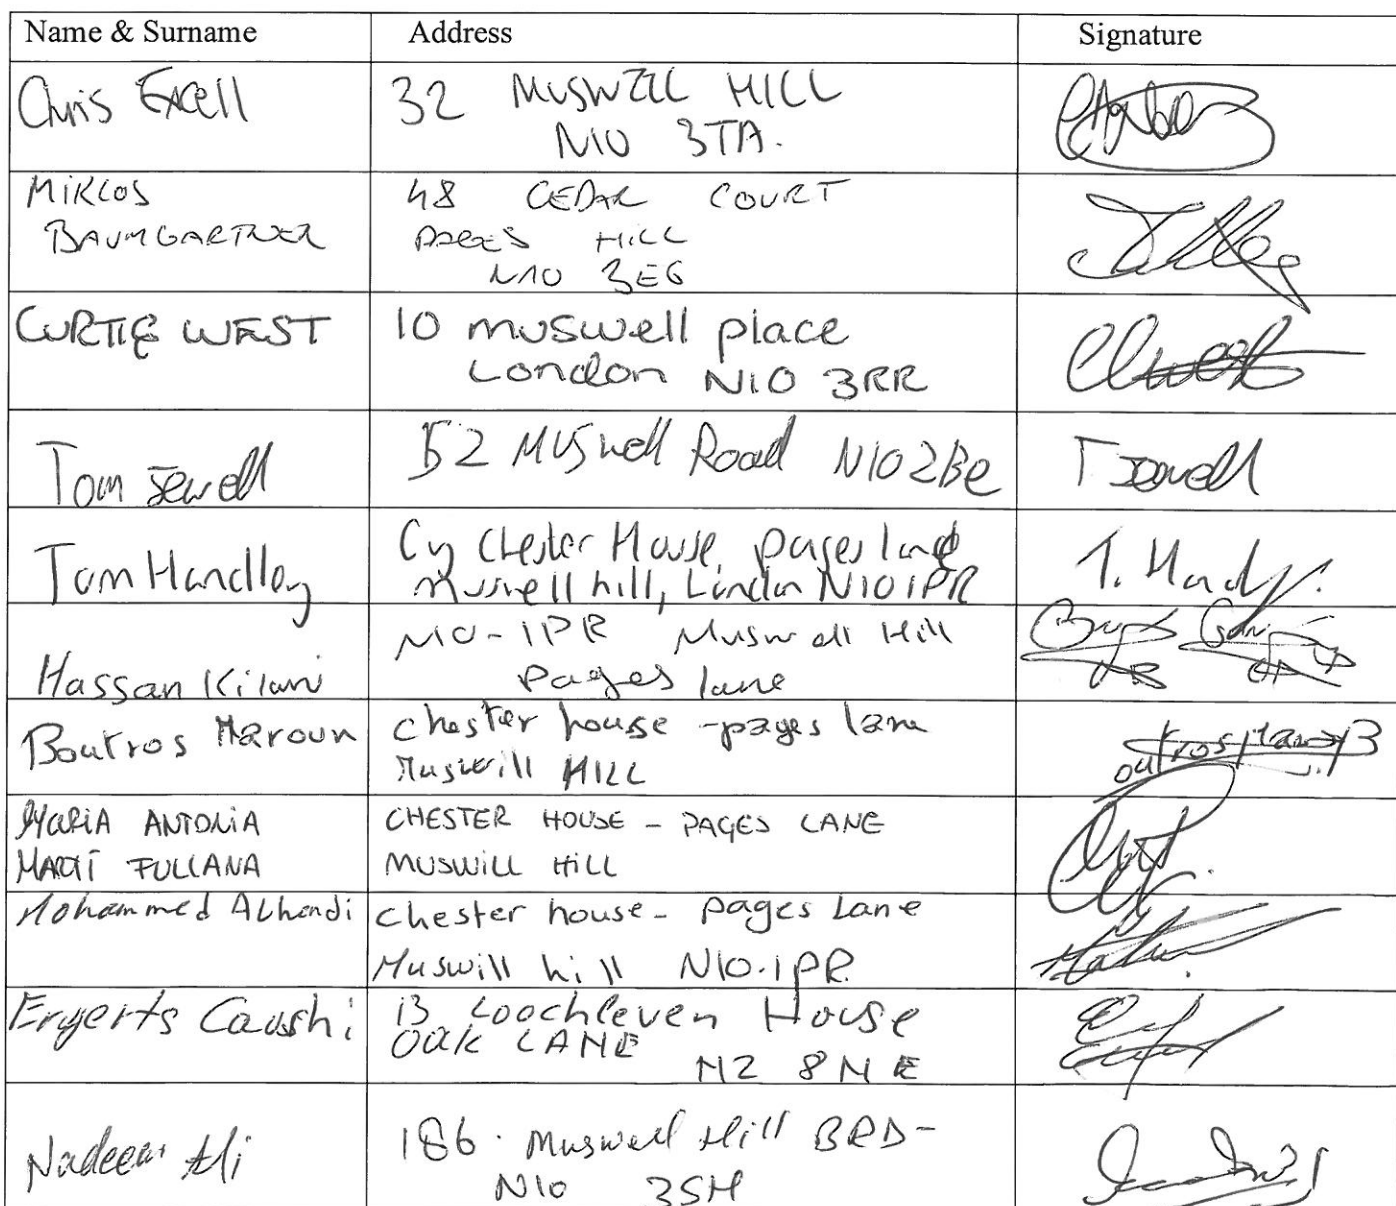 Name & Surname Address Signature
Chris Excell 32 MUSWELL HILL
N10 3TA.
MIKLOS 48 CEDAR COURT
BAUMGARTNER PAGES HILL
N10 3EG
CURTIS WEST 10 muswell place
London N10 3RR
Tom Jewell 52 Muswell Road N10 2Be T Jewell
Tom Handley Chester House, pages lane
Muswell hill, London N10 1PR
Hassan Kilani N10-1PR Muswell Hill
Pages lane
Boutros Maroun chester house - pages lane
Muswill HILL
MARIA ANTONIA CHESTER HOUSE - PAGES LANE
MARTÍ FULLANA MUSWILL HILL
Mohammed Alhendi chester house - pages Lane
Muswill hill N10.1PR
Ergerts Caushi 13 Loochleven House
OAK LANE
N2 8NE
Nadeem Ali 186. Muswell Hill BRD-
N10 3SH